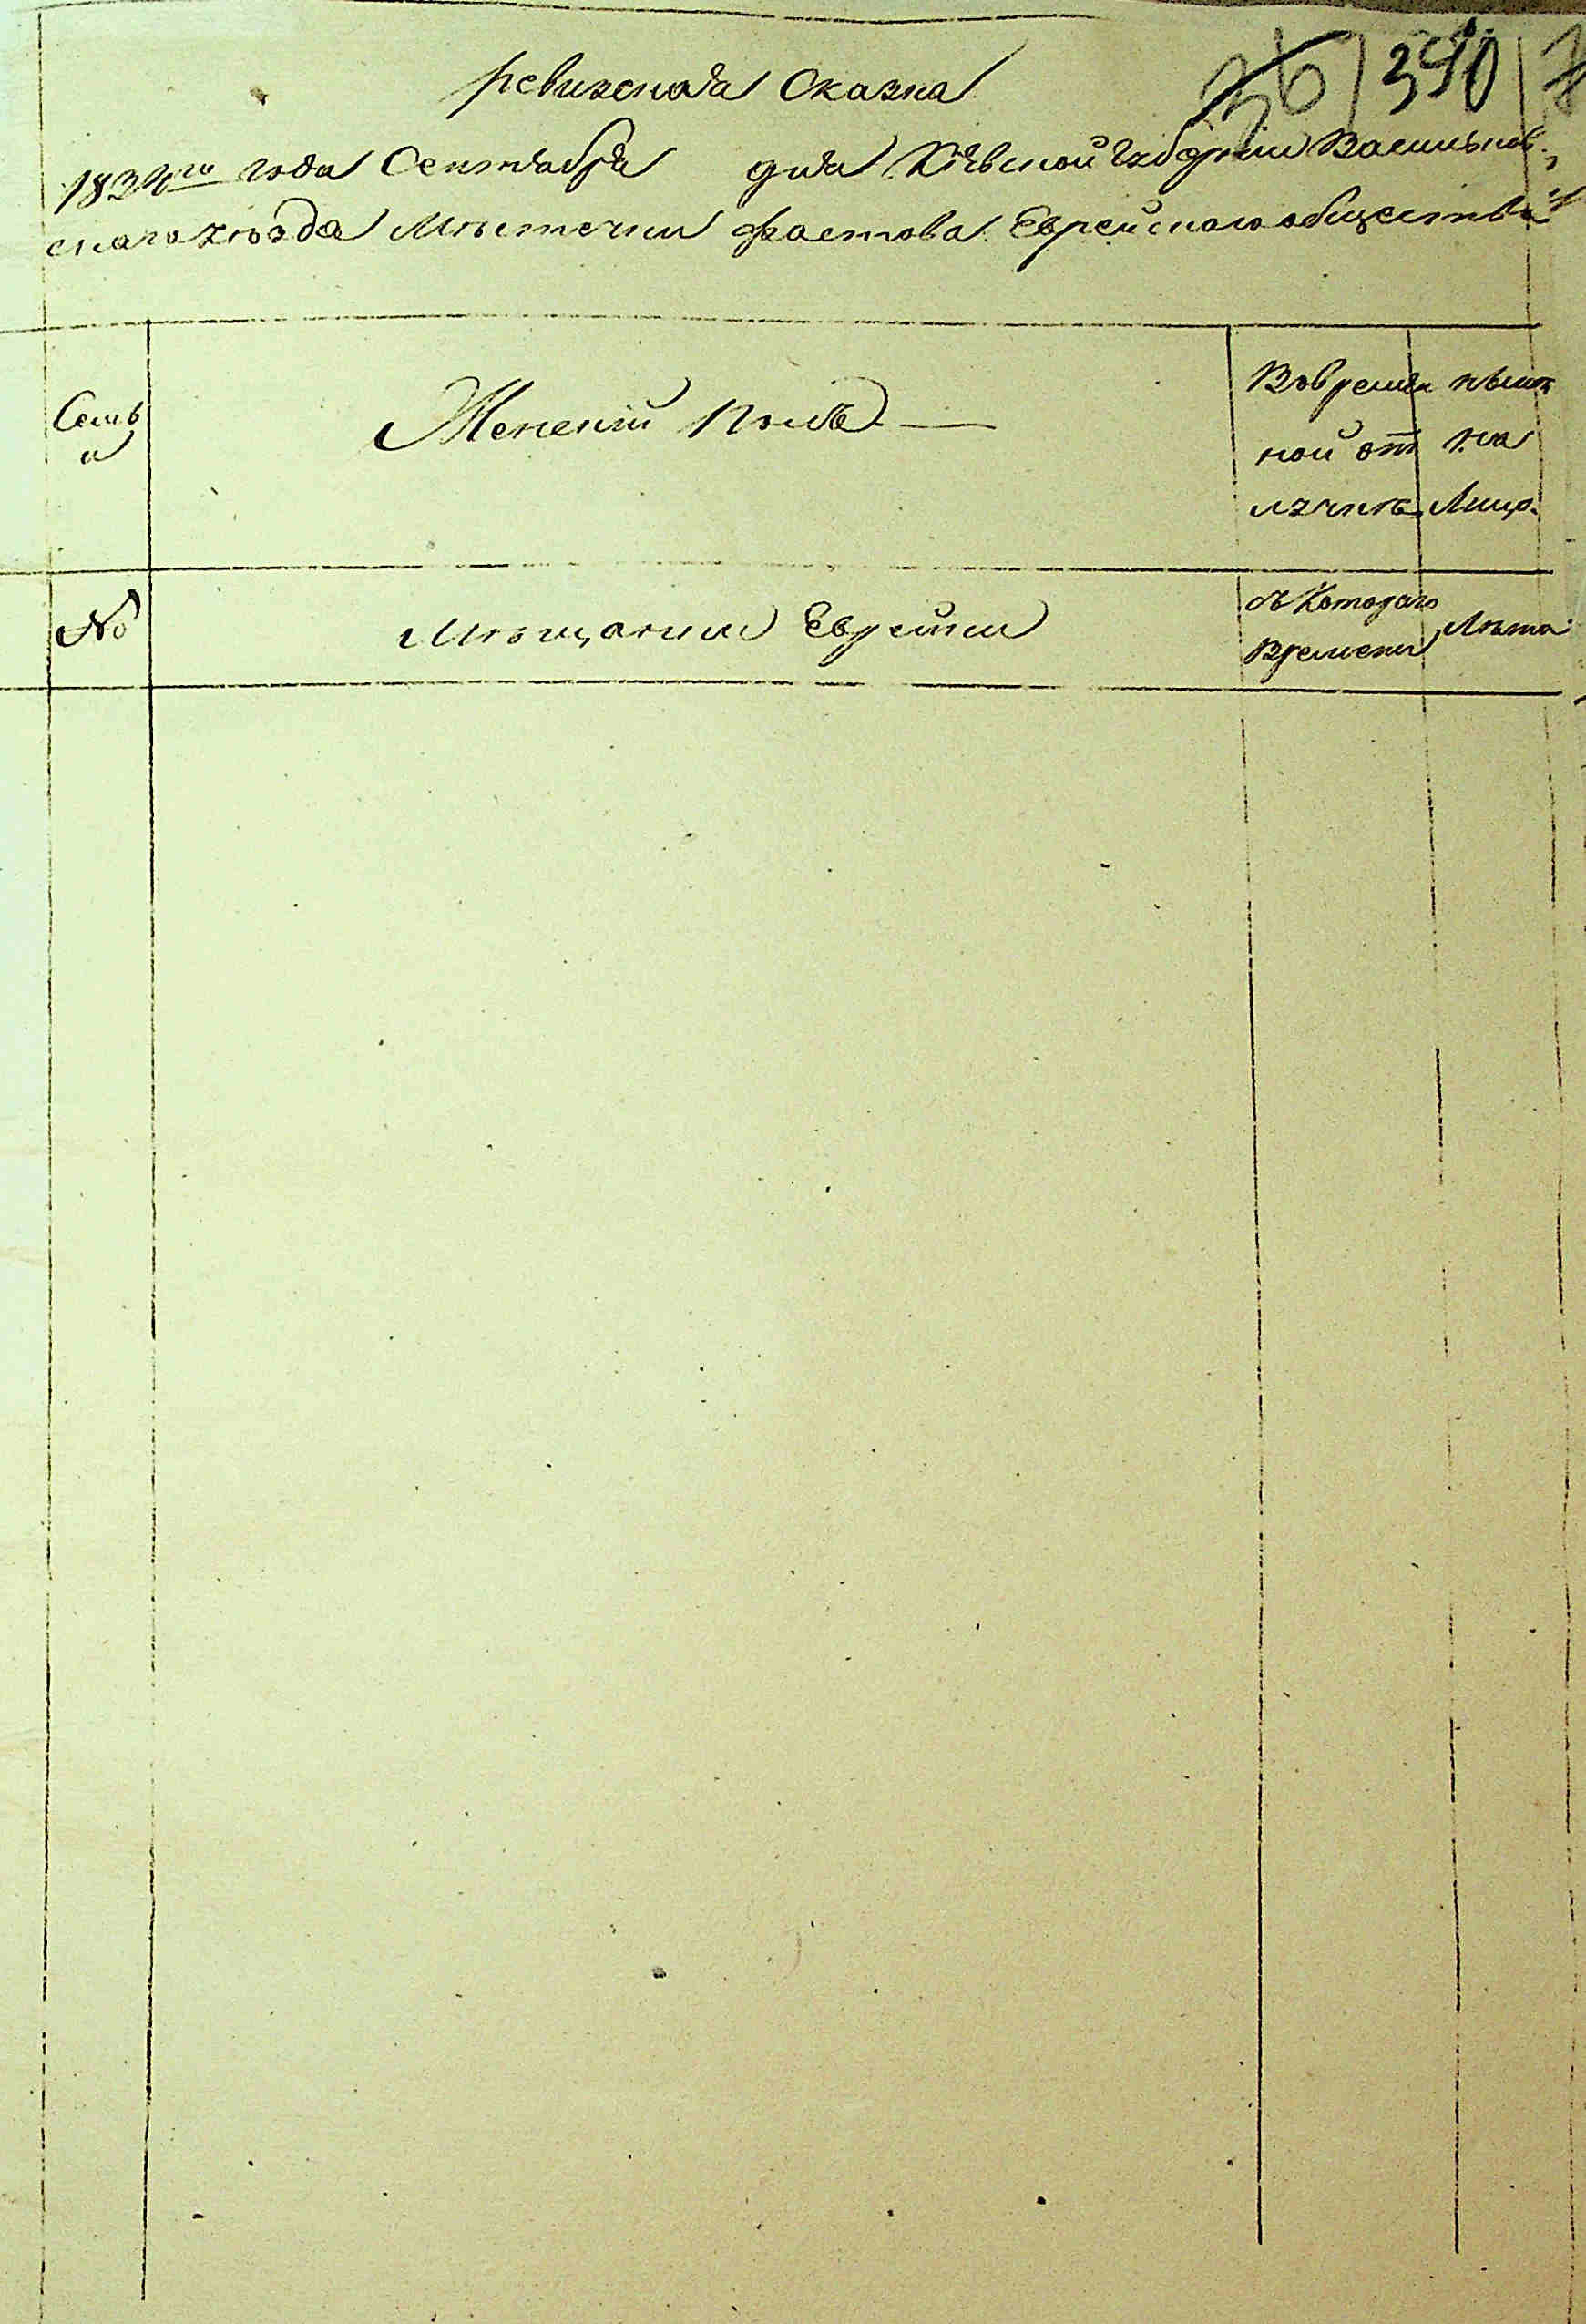 ревижская Сказка
36 390
1834го года Сентября дня Кіевской Губерніи Васильков
скаго уѣзда Мѣстечки Фастова Еврейскаго общества
Семь
и
Женскій Полъ
Вовремя нын
ной от на
лучкѣ Лицо.
№
Мѣщанки Еврейки
съ Котораго
Времени
Лѣта